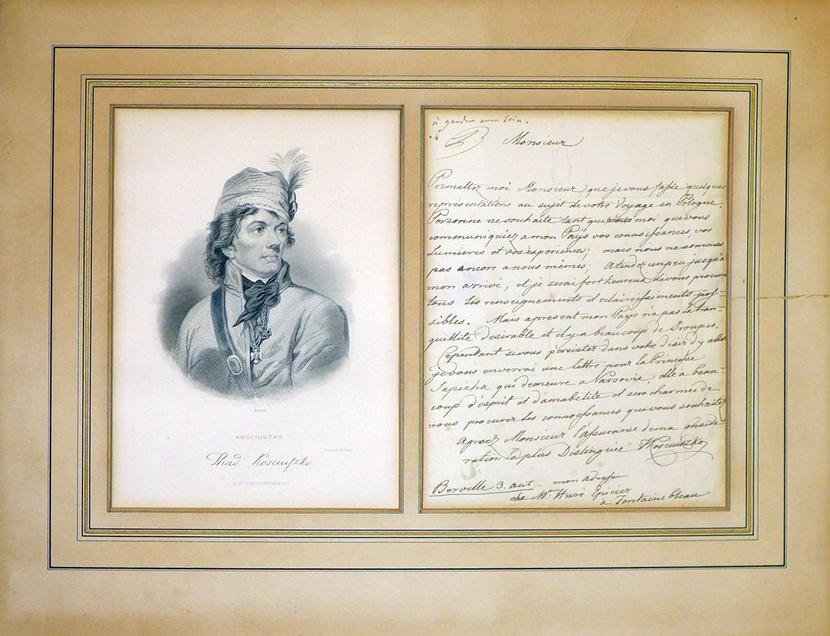 KOSCIUSZKO
Thad Kosciuszko
à garder avec soin.
Monsieur
Permettez moi Monsieur que je vous fasse quelques
représentations au sujet de votre Voyage en Pologne.
Personne ne souhaite tant que moi que vous
communiquiez a mon Pays vos connoissances, vos
Lumieres et vos experience; mais nous ne sommes
pas ancore a nous mêmes, Atendez un peu jusqu'a
mon arrivé, et je serai fort heureux de vous procurer
tous les renseignements et eclaircissements pos-
sibles. Mais apresent mon Pays n'a pas la tran-
quillité desirable et il y a beaucoup de Troupes.
Cependant si vous persister dans votre desir d'y aller
je vous enverrai une lettre pour la Princesse
Sapieha qui demeure a Varsovie, elle a beau-
coup d'esprit et d'amabilité et sera charmée de
vous procurer les connoissances que vous souhaitez
Agreez Monsieur l'assurance de ma conside-
ration la plus Distinguée Kosciuszko
Berville 3. aut. mon adresse
che Mr. Huré Epicier
a Fontaine bleau